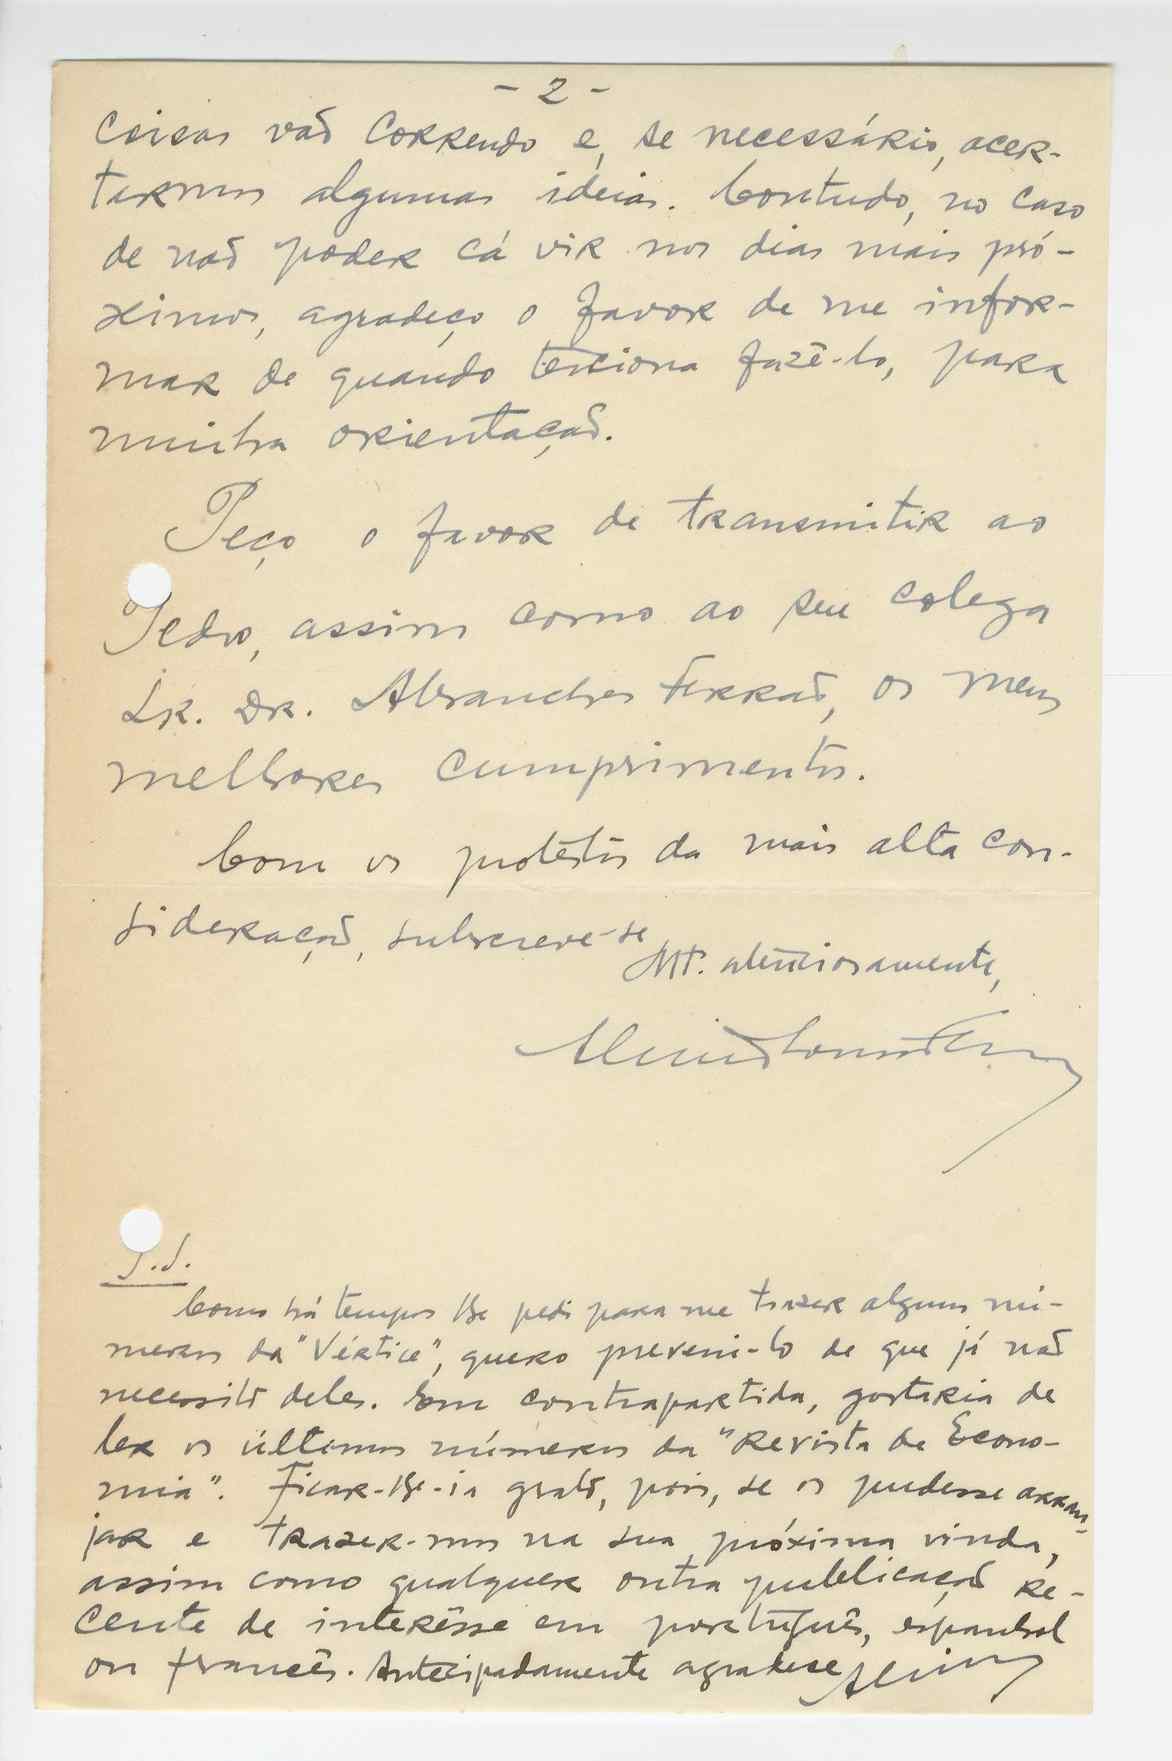 - 2 -
coisas vão correndo e, se necessário, acer-
tarmos algumas ideias. Contudo, no caso
de não poder cá vir nos dias mais pró-
ximos, agradeço o favor de me infor-
mar de quando tenciona fazê-lo, para
minha orientação.
Peço o favor de transmitir ao
Pedro, assim como ao seu colega
Sr. Dr. Abranches Ferrão, os meus
melhores cumprimentos.
Com os protestos da mais alta con-
sideração, subscreve-se
Mt. atenciosamente,
P.S.
Como há tempos lhe pedi para me trazer alguns nú-
meros da "Vértice", quero preveni-lo de que já não
necessito deles. Em contrapartida, gostaria de
ler os últimos números da "Revista de Econo-
mia". Ficar-lhe-ia grato, pois, se os pudesse arran-
jar e trazer-mos na sua próxima vinda,
assim como qualquer outra publicação re-
cente de interêsse em português, espanhol
ou francês. Antecipadamente agradece